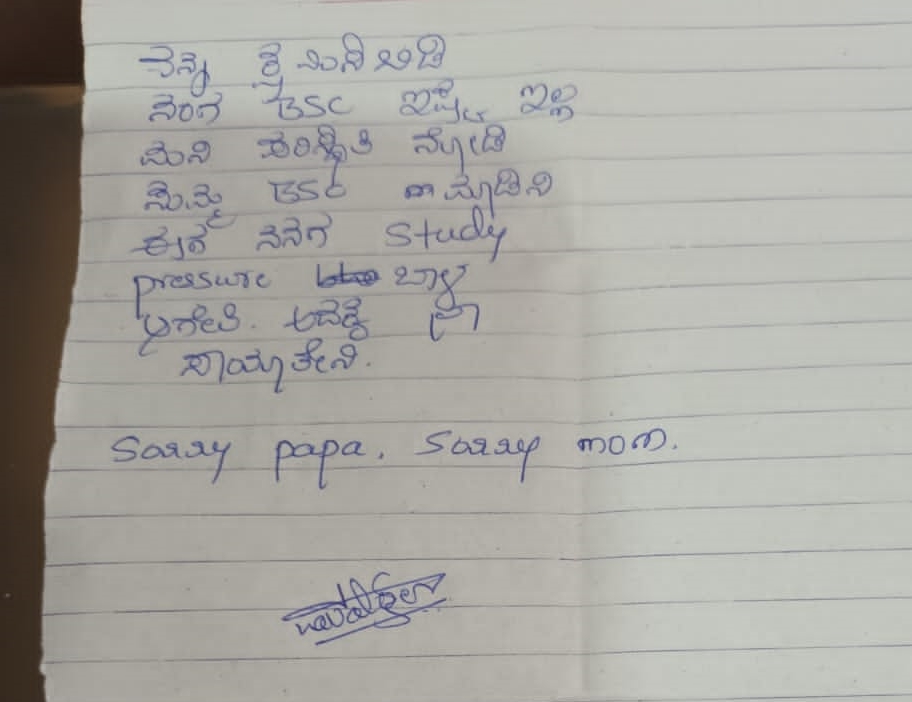 ನನ್ನ ಕ್ಷಮಿಸಿ ಬಿಡಿ
ನಂಗೆ BSC ಇಷ್ಟ ಇಲ್ಲ
ಮನಿ ಪರಿಸ್ಥಿತಿ ನೋಡಿ
ಸುಮ್ನೆ BSC ಮಾಡಿನಿ
ಈಗ ನನಗ Study
pressure ಬಾಳ
ಆಗೇತಿ. ಅದಕ್ಕೆ ನಾ
ಸಾಯಾತೇನಿ.
Sorry papa. Sorry mom.